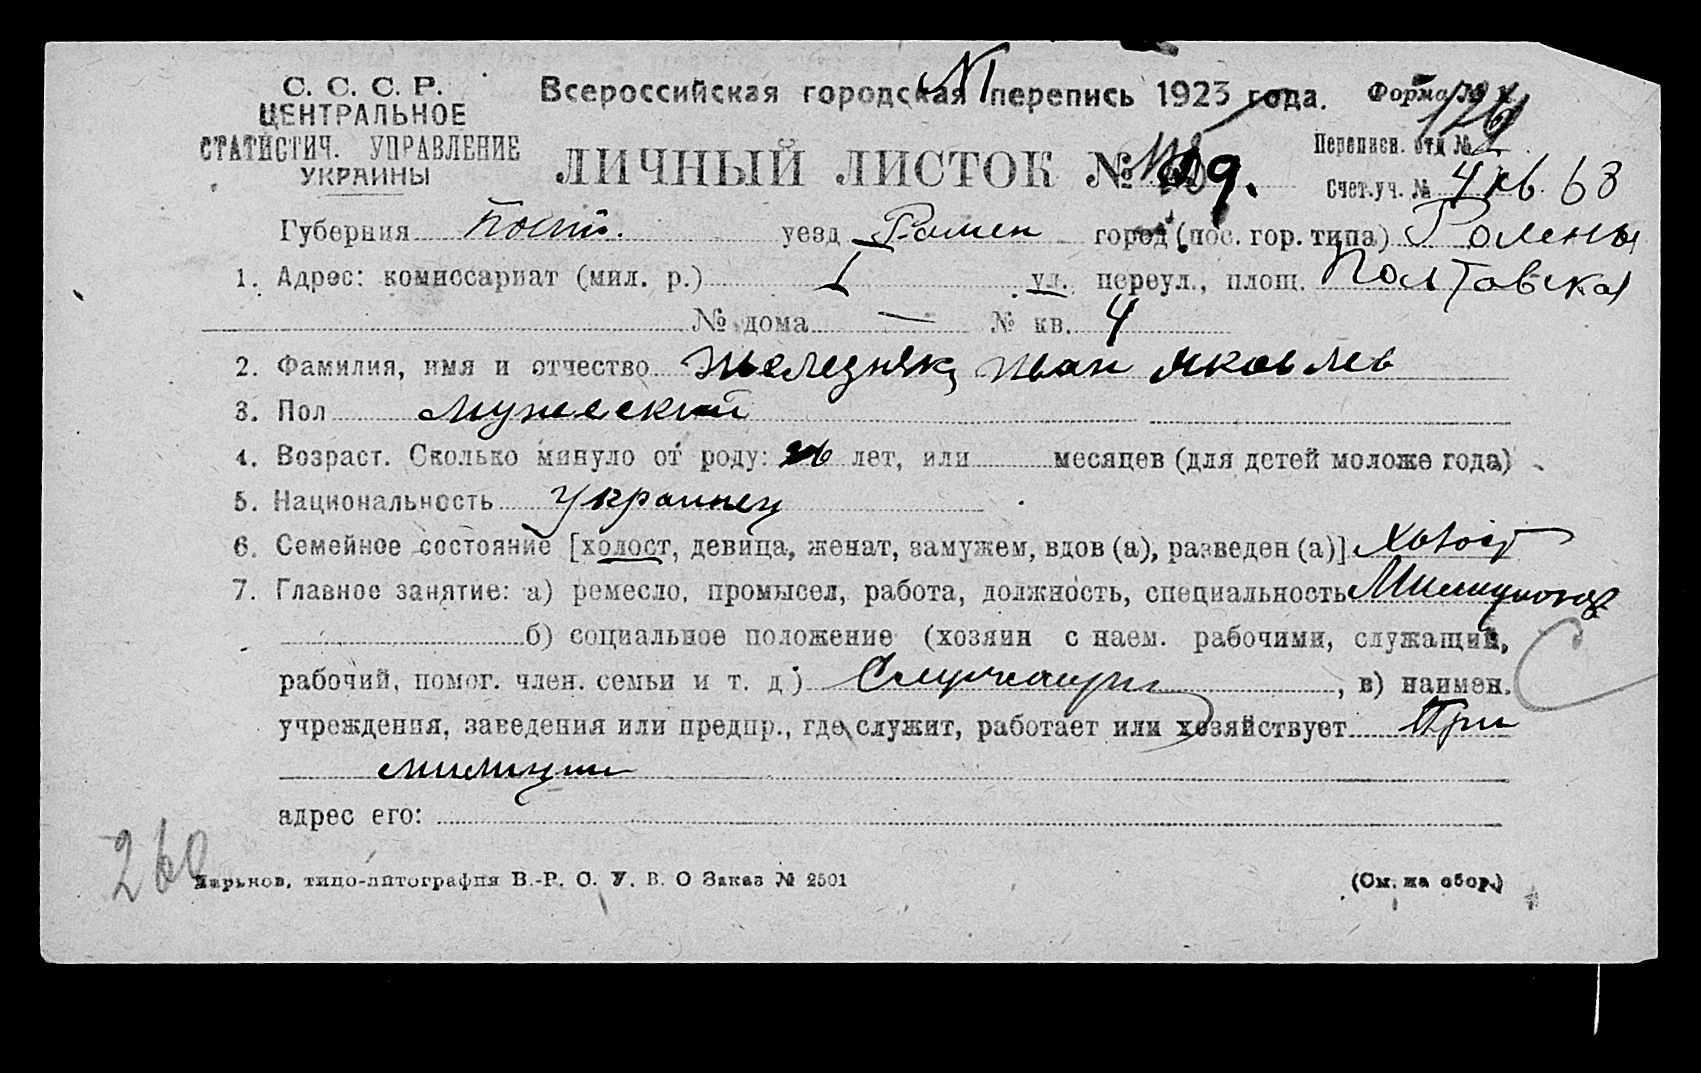 С. С. С. Р.
ЦЕНТРАЛЬНОЕ
СТАТИСТИЧ. УПРАВЛЕНИЕ
УКРАИНЫ
Всероссийская городская перепись 1923 года. Форма №
ЛИЧНЫЙ ЛИСТОК № 9.
Переписн. отд №
Счет.уч. № 4 кв 63
Губерния Полт. уезд Ромен город (пос. гор. типа) Ромены
1. Адрес: комиссариат (мил. р.) I ул. переул., площ. Полтавская
№ дома — № кв. 4
2. Фамилия, имя и отчество Железняк Иван Яковлев
3. Пол Мужеский
4. Возраст. Сколько минуло от роду: 26 лет, или месяцев (для детей моложе года)
5. Национальность Украинец
6. Семейное состояние [холост, девица, женат, замужем, вдов (а), разведен (а)] Холост
7. Главное занятие: а) ремесло, промысел, работа, должность, специальность Милиционер
б) социальное положение (хозяин с наем. рабочими, служащий,
рабочий, помог. член. семьи и т. д.) Служащий, в) наимен.
учреждения, заведения или предпр., где служит, работает или хозяйствует При
милиции
адрес его:
260
Харьков, типо-литография В.-Р. С. У. В. О Заказ № 2501
(См. на обор.)